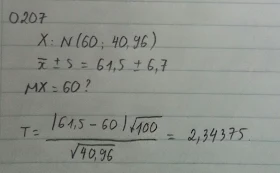 0207
X: N(60; 40,96)
x̄ ± s = 61,5 ± 6,7
MX = 60?
T = |61,5 - 60|√100 / √40,96 = 2,34375